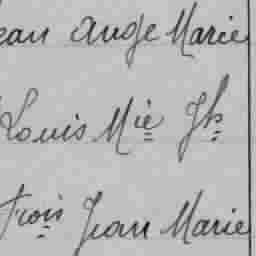 ean Ange Marie
Louis Mie Jh
Frois Jean Marie